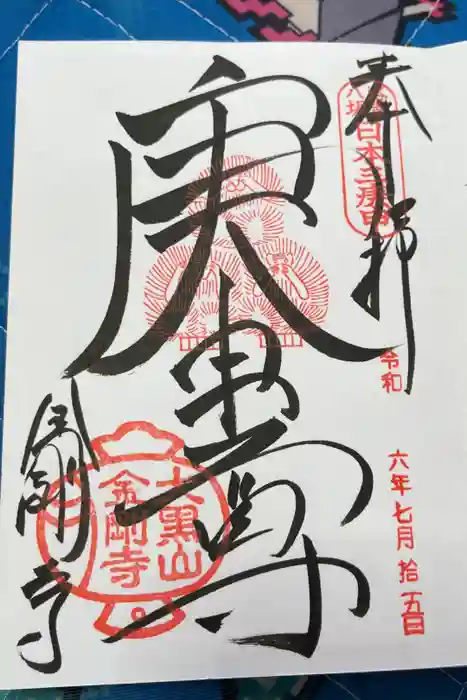 奉拝
八坂 日本三庚申
令和
六年七月拾五日
庚申尊
大黒山
金剛寺
金剛寺